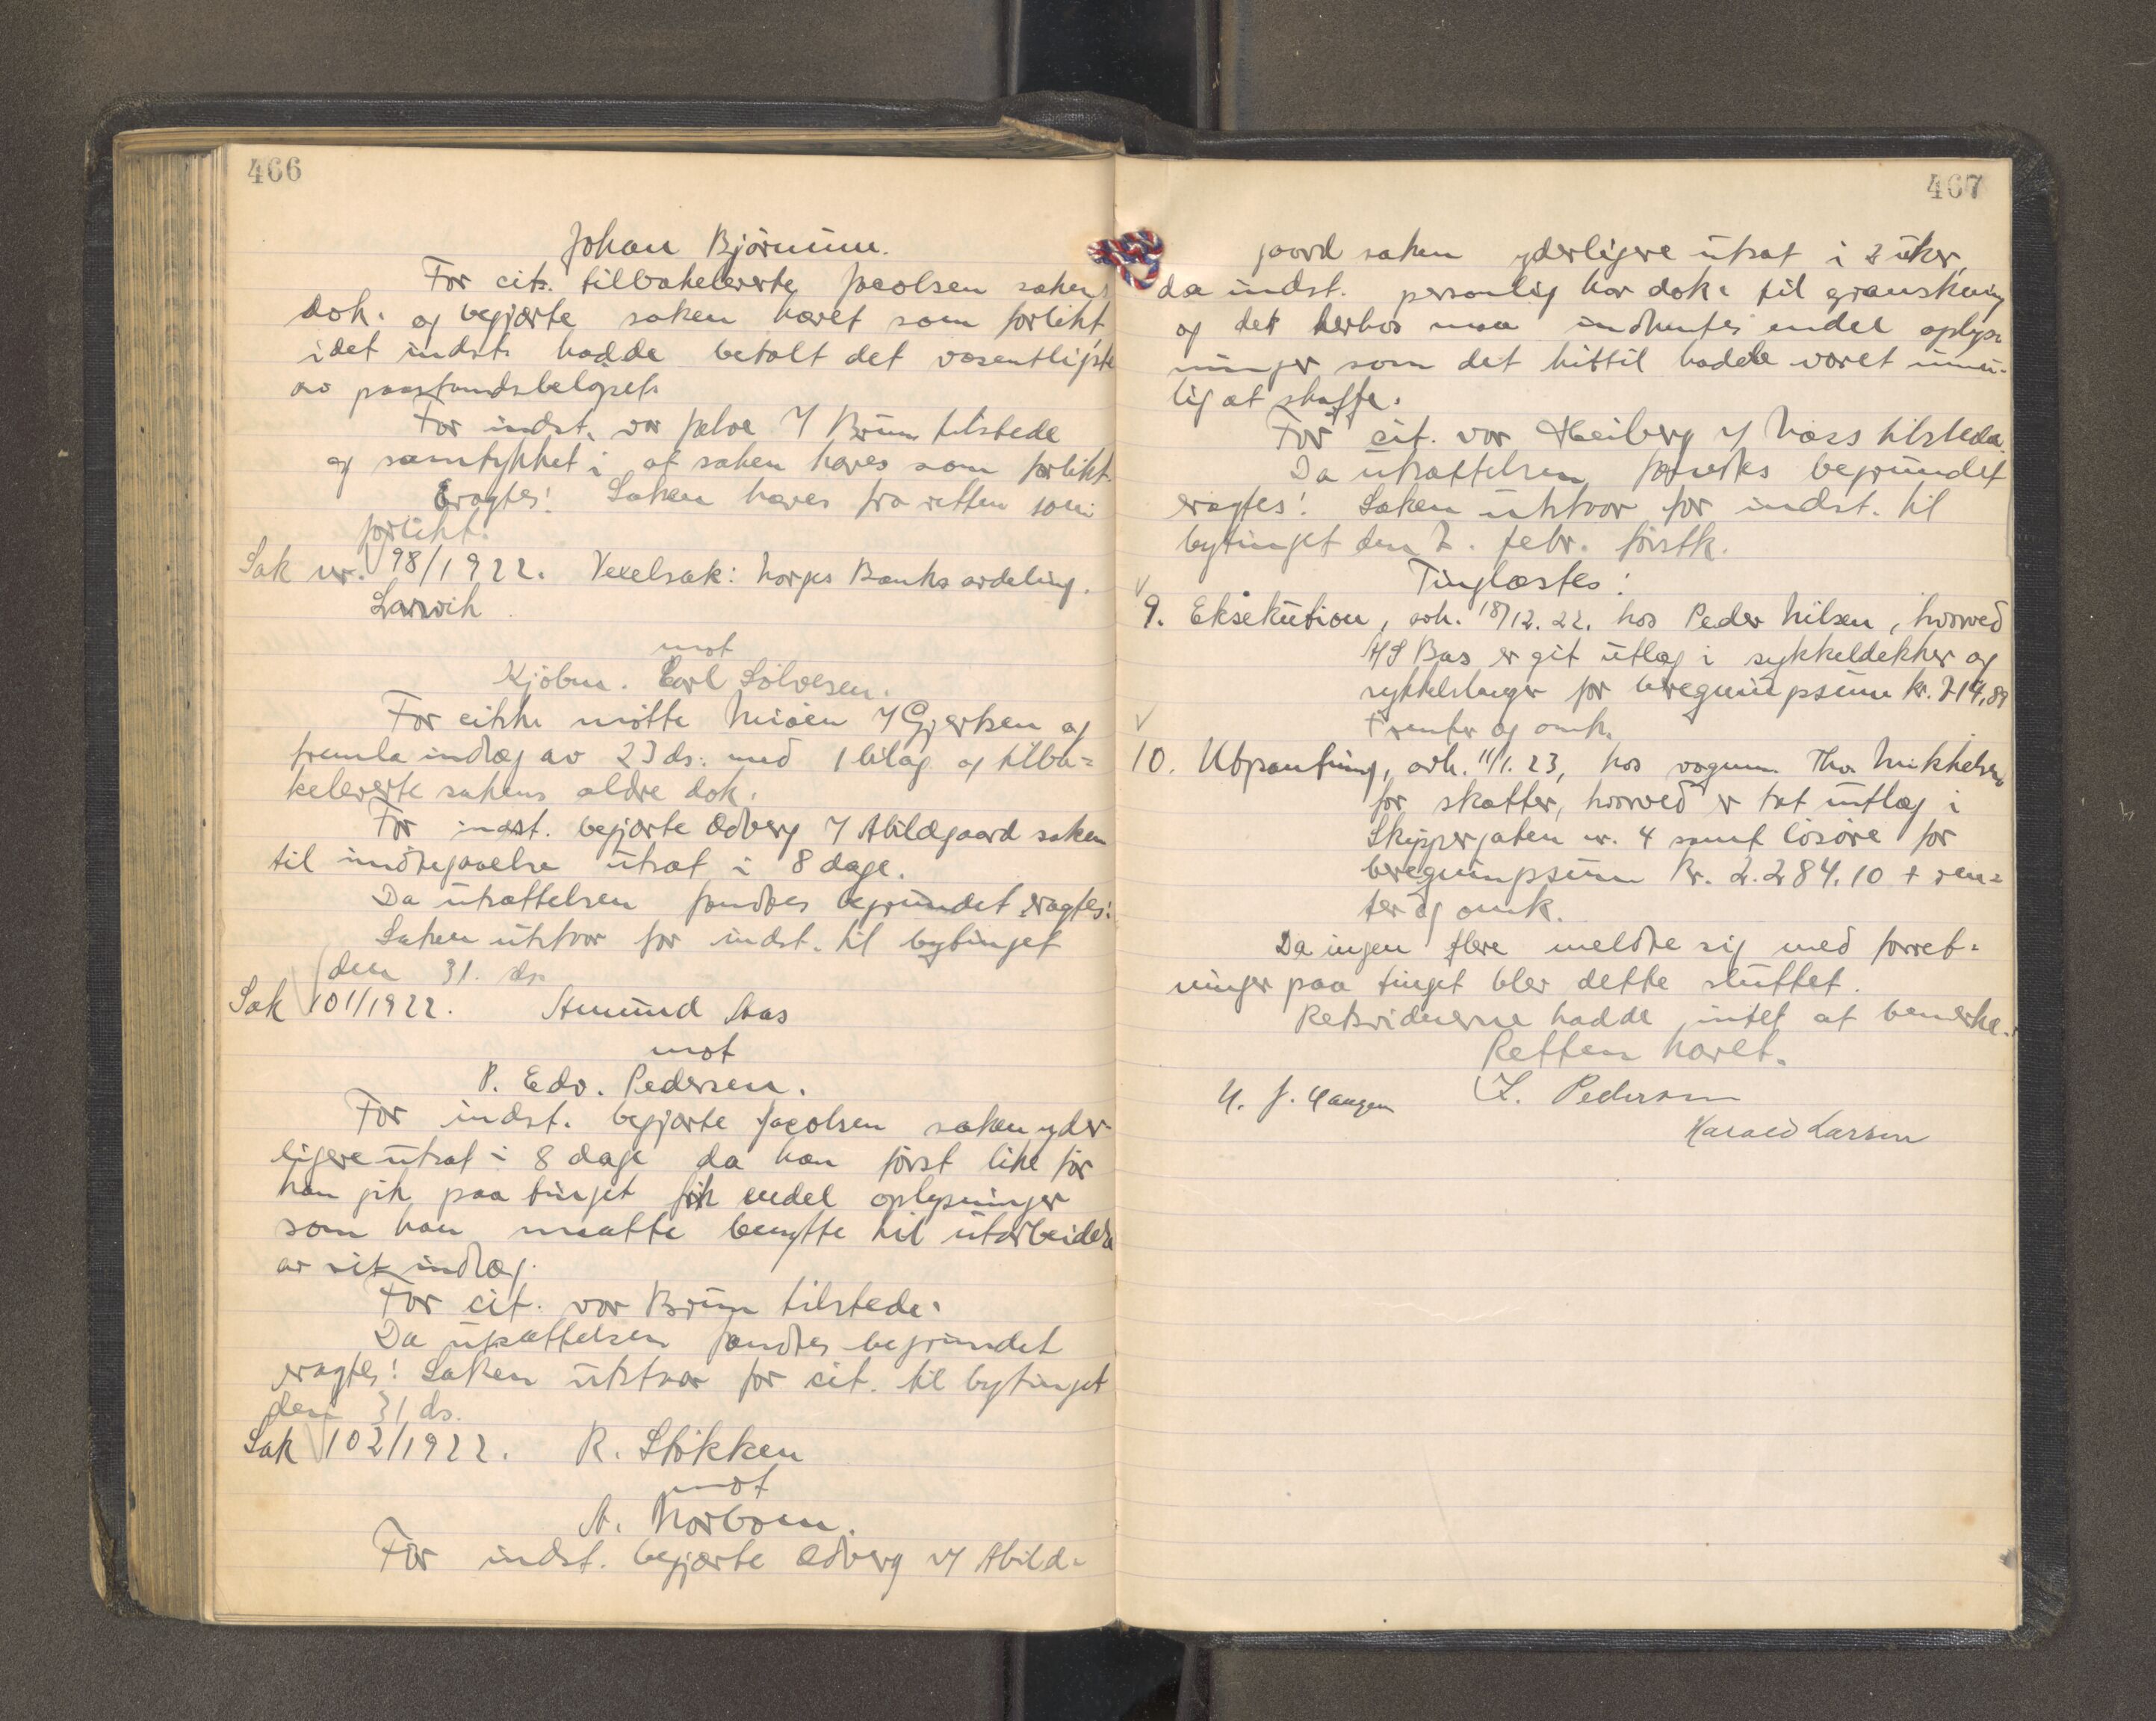 466
Johan Björnum.
For cit. tilbakeleverte Jacolsen sakens
dok. og begjærte saken hævet som forlikt,
idet indst. hadde betalt det væsentligste
av paastandsbeløpet.
For indst. var selve Brun tilstede
og samtykket i at saken hæves som forlikt.
Eragtes: Saken hæves fra retten som
forlikt.
Sak nr. 98/1922. Vexelsak: Norges Banks avdeling,
Larvik
mot
Kjøbm. Carl Sölvesen.
For citk. møtte Gjertsen og
fremla indlæg av 23 ds. med 1 bilag og tilba=
keleverte sakens ældre dok.
For indst. begjærte Ødberg Abildgaard saken
til imøtegaaelse utsat i 8 dage.
Da utsættelsen fandtes begrundet eragtes:
Saken utstaar for indst. til bytinget
den 31. ds.
Sak 101/1922. Amund Aas
mot
P. Edv. Pedersen.
For indst. begjærte Jacolsen saken yder-
ligere utsat i 8 dage da han først like før
han gik paa tinget fik endel oplysninger
som han maatte benytte til utarbeidelse
av sit indlæg.
For cit. var Brun tilstede.
Da utsættelsen fandtes begrundet
eragtes: Saken utstaar for cit. til bytinget
den 31 ds.
Sak 102/1922. R. Stökken
mot
A. Norbom.
For indst. begjærte Ødberg Abild=
467
gaard saken yderligere utsat i 2 uker,
da indst. personlig har dok. til granskning
og det derhos maa indhentes endel oplys=
ninger som det hittil hadde været umu=
lig at skaffe.
For cit. var Heiberg Næss tilstede.
Da utsættelsen fandtes begrundet
eragtes: Saken utstaar for indst. til
bytinget den 7. febr. førstk.
Tinglæstes:
9. Eksekution, avh. 18/12. 22. hos Peder Nilsen, hvorved
A/S Bas er git utlæg i sykkeldekker og
sykkelslanger for beregningssum kr. 714,89
+ renter og omk.
10. Utpantning, avh. 11/1. 23, hos vognm. Thv. Mikkelsen
for skatter, hvorved er tat utlæg i
Skippergaten nr. 4 samt løsøre for
beregningssum kr. 2.284.10 + ren=
ter og omk.
Da ingen flere meldte sig med forret=
ninger paa tinget blev dette sluttet.
Retsvidnerne hadde intet at bemerke.
Retten hævet.
Haugen L. Pedersen
Harald Larsen